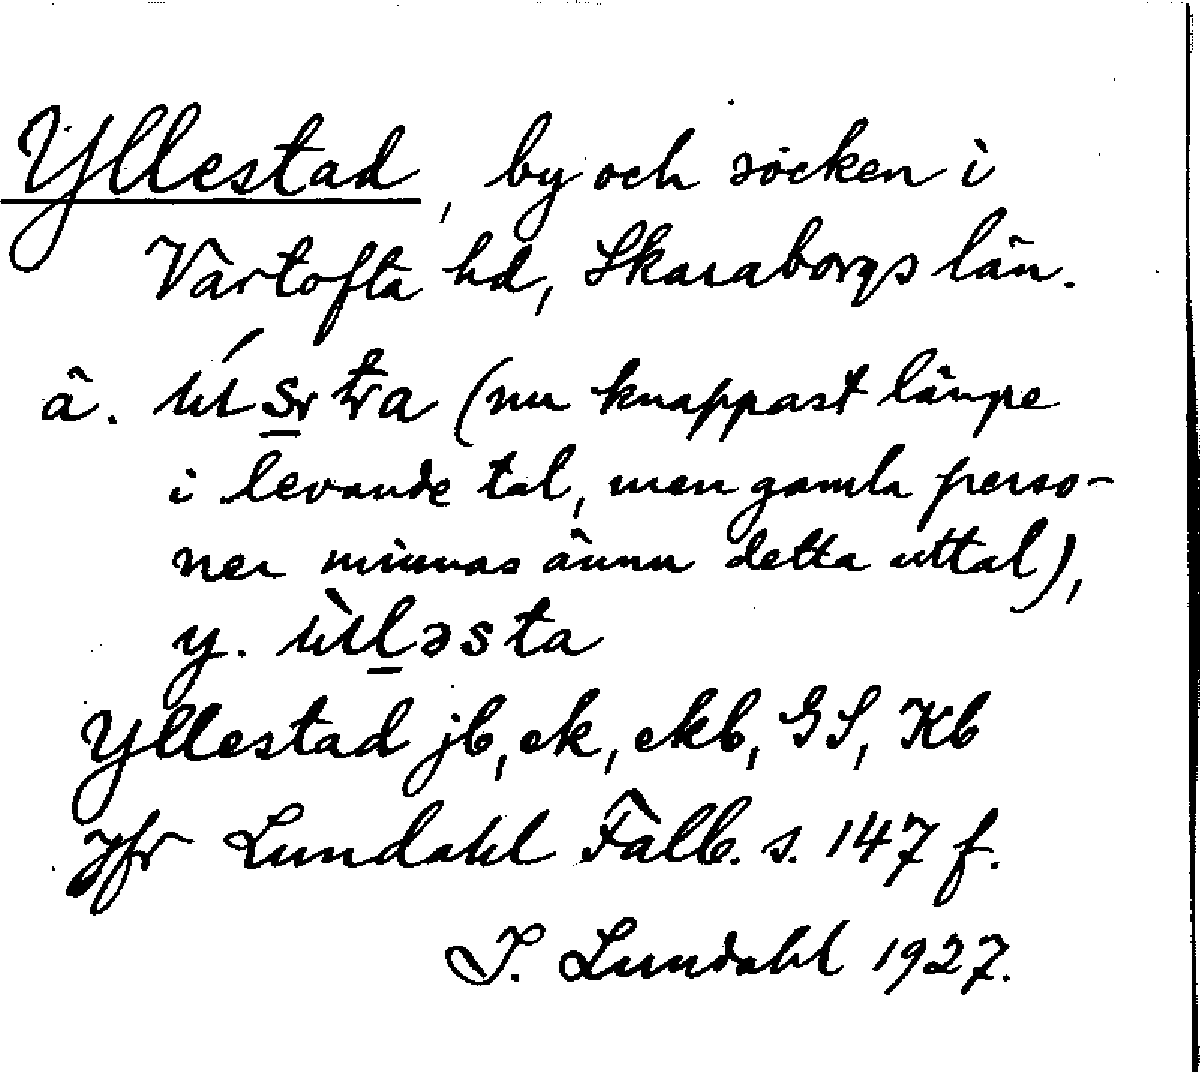 Yllestad, by och socken i
Vartofta hd, Skaraborgs län.
ä. (nu knappast längre
i levande tal, men gamla perso-
ner minnas ännu detta uttal),
y.
Yllestad jb, ek, ekb, GS, Kb
Jfr Lundahl Falb. s. 147 f.
I. Lundahl 1927.